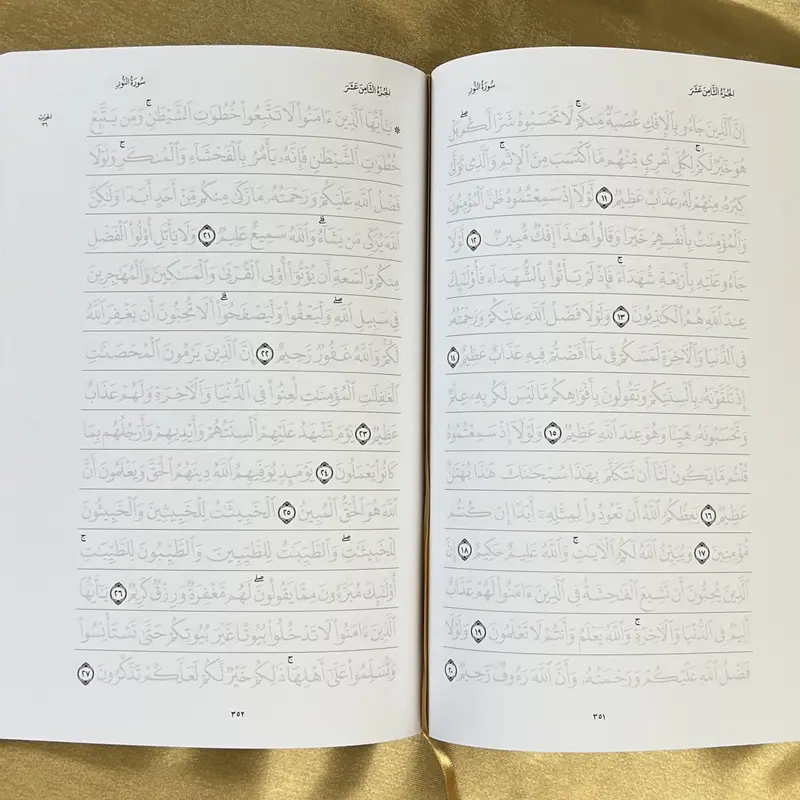 الجزء الثامن عشر
سورة النور
إِنَّ ٱلَّذِينَ جَآءُو بِٱلْإِفْكِ عُصْبَةٌ مِّنكُمْ لَا تَحْسَبُوهُ شَرًّا لَّكُم ۖ بَلْ
هُوَ خَيْرٌ لَّكُمْ ۚ لِكُلِّ ٱمْرِئٍ مِّنْهُم مَّا ٱكْتَسَبَ مِنَ ٱلْإِثْمِ ۚ وَٱلَّذِى تَوَلَّىٰ
كِبْرَهُۥ مِنْهُمْ لَهُۥ عَذَابٌ عَظِيمٌ ١١ لَّوْلَآ إِذْ سَمِعْتُمُوهُ ظَنَّ ٱلْمُؤْمِنُونَ
وَٱلْمُؤْمِنَٰتُ بِأَنفُسِهِمْ خَيْرًا وَقَالُوا۟ هَٰذَآ إِفْكٌ مُّبِينٌ ١٢ لَّوْلَا
جَآءُو عَلَيْهِ بِأَرْبَعَةِ شُهَدَآءَ ۚ فَإِذْ لَمْ يَأْتُوا۟ بِٱلشُّهَدَآءِ فَأُو۟لَٰٓئِكَ
عِندَ ٱللَّهِ هُمُ ٱلْكَٰذِبُونَ ١٣ وَلَوْلَا فَضْلُ ٱللَّهِ عَلَيْكُمْ وَرَحْمَتُهُۥ
فِى ٱلدُّنْيَا وَٱلْءَاخِرَةِ لَمَسَّكُمْ فِى مَآ أَفَضْتُمْ فِيهِ عَذَابٌ عَظِيمٌ ١٤
إِذْ تَلَقَّوْنَهُۥ بِأَلْسِنَتِكُمْ وَتَقُولُونَ بِأَفْوَاهِكُم مَّا لَيْسَ لَكُم بِهِۦ عِلْمٌ
وَتَحْسَبُونَهُۥ هَيِّنًا وَهُوَ عِندَ ٱللَّهِ عَظِيمٌ ١٥ وَلَوْلَآ إِذْ سَمِعْتُمُوهُ
قُلْتُم مَّا يَكُونُ لَنَآ أَن نَّتَكَلَّمَ بِهَٰذَا سُبْحَٰنَكَ هَٰذَا بُهْتَٰنٌ
عَظِيمٌ ١٦ يَعِظُكُمُ ٱللَّهُ أَن تَعُودُوا۟ لِمِثْلِهِۦٓ أَبَدًا إِن كُنتُم
مُّؤْمِنِينَ ١٧ وَيُبَيِّنُ ٱللَّهُ لَكُمُ ٱلْءَايَٰتِ ۚ وَٱللَّهُ عَلِيمٌ حَكِيمٌ ١٨ إِنَّ
ٱلَّذِينَ يُحِبُّونَ أَن تَشِيعَ ٱلْفَٰحِشَةُ فِى ٱلَّذِينَ ءَامَنُوا۟ لَهُمْ عَذَابٌ
أَلِيمٌ فِى ٱلدُّنْيَا وَٱلْءَاخِرَةِ ۚ وَٱللَّهُ يَعْلَمُ وَأَنتُمْ لَا تَعْلَمُونَ ١٩ وَلَوْلَا
فَضْلُ ٱللَّهِ عَلَيْكُمْ وَرَحْمَتُهُۥ وَأَنَّ ٱللَّهَ رَءُوفٌ رَّحِيمٌ ٢٠
٣٥١
الجزء الثامن عشر
سورة النور
۞ يَٰٓأَيُّهَا ٱلَّذِينَ ءَامَنُوا۟ لَا تَتَّبِعُوا۟ خُطُوَٰتِ ٱلشَّيْطَٰنِ ۚ وَمَن يَتَّبِعْ
خُطُوَٰتِ ٱلشَّيْطَٰنِ فَإِنَّهُۥ يَأْمُرُ بِٱلْفَحْشَآءِ وَٱلْمُنكَرِ ۚ وَلَوْلَا
فَضْلُ ٱللَّهِ عَلَيْكُمْ وَرَحْمَتُهُۥ مَا زَكَىٰ مِنكُم مِّنْ أَحَدٍ أَبَدًا وَلَٰكِنَّ
ٱللَّهَ يُزَكِّى مَن يَشَآءُ ۗ وَٱللَّهُ سَمِيعٌ عَلِيمٌ ٢١ وَلَا يَأْتَلِ أُو۟لُوا۟ ٱلْفَضْلِ
مِنكُمْ وَٱلسَّعَةِ أَن يُؤْتُوٓا۟ أُو۟لِى ٱلْقُرْبَىٰ وَٱلْمَسَٰكِينَ وَٱلْمُهَٰجِرِينَ
فِى سَبِيلِ ٱللَّهِ ۖ وَلْيَعْفُوا۟ وَلْيَصْفَحُوٓا۟ ۗ أَلَا تُحِبُّونَ أَن يَغْفِرَ ٱللَّهُ
لَكُمْ ۗ وَٱللَّهُ غَفُورٌ رَّحِيمٌ ٢٢ إِنَّ ٱلَّذِينَ يَرْمُونَ ٱلْمُحْصَنَٰتِ
ٱلْغَٰفِلَٰتِ ٱلْمُؤْمِنَٰتِ لُعِنُوا۟ فِى ٱلدُّنْيَا وَٱلْءَاخِرَةِ وَلَهُمْ عَذَابٌ
عَظِيمٌ ٢٣ يَوْمَ تَشْهَدُ عَلَيْهِمْ أَلْسِنَتُهُمْ وَأَيْدِيهِمْ وَأَرْجُلُهُم بِمَا
كَانُوا۟ يَعْمَلُونَ ٢٤ يَوْمَئِذٍ يُوَفِّيهِمُ ٱللَّهُ دِينَهُمُ ٱلْحَقَّ وَيَعْلَمُونَ أَنَّ
ٱللَّهَ هُوَ ٱلْحَقُّ ٱلْمُبِينُ ٢٥ ٱلْخَبِيثَٰتُ لِلْخَبِيثِينَ وَٱلْخَبِيثُونَ
لِلْخَبِيثَٰتِ ۖ وَٱلطَّيِّبَٰتُ لِلطَّيِّبِينَ وَٱلطَّيِّبُونَ لِلطَّيِّبَٰتِ ۚ
أُو۟لَٰٓئِكَ مُبَرَّءُونَ مِمَّا يَقُولُونَ ۖ لَهُم مَّغْفِرَةٌ وَرِزْقٌ كَرِيمٌ ٢٦ يَٰٓأَيُّهَا
ٱلَّذِينَ ءَامَنُوا۟ لَا تَدْخُلُوا۟ بُيُوتًا غَيْرَ بُيُوتِكُمْ حَتَّىٰ تَسْتَأْنِسُوا۟
وَتُسَلِّمُوا۟ عَلَىٰٓ أَهْلِهَا ۚ ذَٰلِكُمْ خَيْرٌ لَّكُمْ لَعَلَّكُمْ تَذَكَّرُونَ ٢٧
٣٥٢